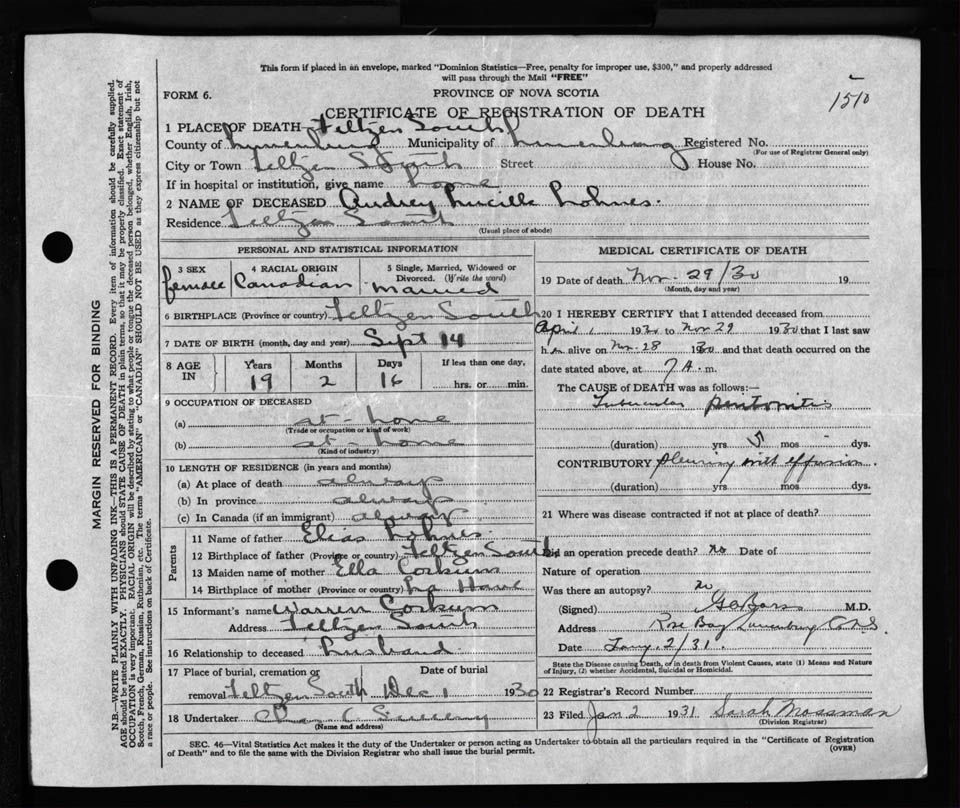 This form if placed in an envelope, marked "Dominion Statistics—Free, penalty for improper use, $300," and properly addressed
will pass through the Mail "FREE"
FORM 6.
PROVINCE OF NOVA SCOTIA
1510
CERTIFICATE OF REGISTRATION OF DEATH
1 PLACE OF DEATH Feltzen South
County of Lunenburg Municipality of Lunenburg Registered No.
(For use of Registrar General only)
City or Town Feltzen South Street House No.
If in hospital or institution, give name home
2 NAME OF DECEASED Audrey Lucille Lohnes.
Residence Feltzen South
(Usual place of abode)
PERSONAL AND STATISTICAL INFORMATION
3 SEX 4 RACIAL ORIGIN 5 Single, Married, Widowed or
Divorced. (Write the word)
female Canadian married
6 BIRTHPLACE (Province or country) Feltzen South
7 DATE OF BIRTH (month, day and year) Sept 14
8 AGE IN Years Months Days If less than one day,
19 2 16 hrs. or min.
9 OCCUPATION OF DECEASED
(a) at-home
(Trade or occupation or kind of work)
(b) at-home
(Kind of industry)
10 LENGTH OF RESIDENCE (in years and months)
(a) At place of death always
(b) In province always
(c) In Canada (if an immigrant) always
Parents
11 Name of father Elias Lohnes
12 Birthplace of father (Province or country) Feltzen South
13 Maiden name of mother Ella Corkum
14 Birthplace of mother (Province or country) La Have
15 Informant's name Warren Corkum
Address Feltzen South
16 Relationship to deceased Husband
17 Place of burial, cremation or Date of burial
removal Feltzen South Dec 1 1930
18 Undertaker
(Name and address)
MEDICAL CERTIFICATE OF DEATH
19 Date of death Nov. 29/30 19
(Month, day and year)
20 I HEREBY CERTIFY that I attended deceased from
April 1 1930 to Nov 29 1930 that I last saw
h er alive on Nov. 28 1930 and that death occurred on the
date stated above, at 7 A. m.
The CAUSE OF DEATH was as follows:—
Tubercular peritonitis
(duration) yrs 5 mos - dys.
CONTRIBUTORY pleurisy with effusion.
(duration) yrs mos dys.
21 Where was disease contracted if not at place of death?
Did an operation precede death? no Date of
Nature of operation
Was there an autopsy? no
(Signed) M.D.
Address Rose Bay Lunenburg Co N.S.
Date Jany. 2/31.
State the Disease causing Death, or in death from Violent Causes, state (1) Means and Nature
of Injury, (2) whether Accidental, Suicidal or Homicidal.
22 Registrar's Record Number
23 Filed Jan 2 1931 Sarah Mossman
(Division Registrar)
SEC. 46—Vital Statistics Act makes it the duty of the Undertaker or person acting as Undertaker to obtain all the particulars required in the "Certificate of Registration
of Death" and to file the same with the Division Registrar who shall issue the burial permit.
(OVER)
MARGIN RESERVED FOR BINDING
N.B.—WRITE PLAINLY WITH UNFADING INK—THIS IS A PERMANENT RECORD. Every item of information should be carefully supplied.
AGE should be stated EXACTLY. PHYSICIANS should STATE CAUSE OF DEATH in plain terms, so that it may be properly classified. Exact statement of
OCCUPATION is very important. RACIAL ORIGIN will be described by stating to what people or tongue the deceased person belonged, whether English, Irish,
Scotch, French, German, Russian, Ruthenian, etc. The terms "AMERICAN" or "CANADIAN" SHOULD NOT BE USED as they express citizenship but not
a race or people. See instructions on back of Certificate.